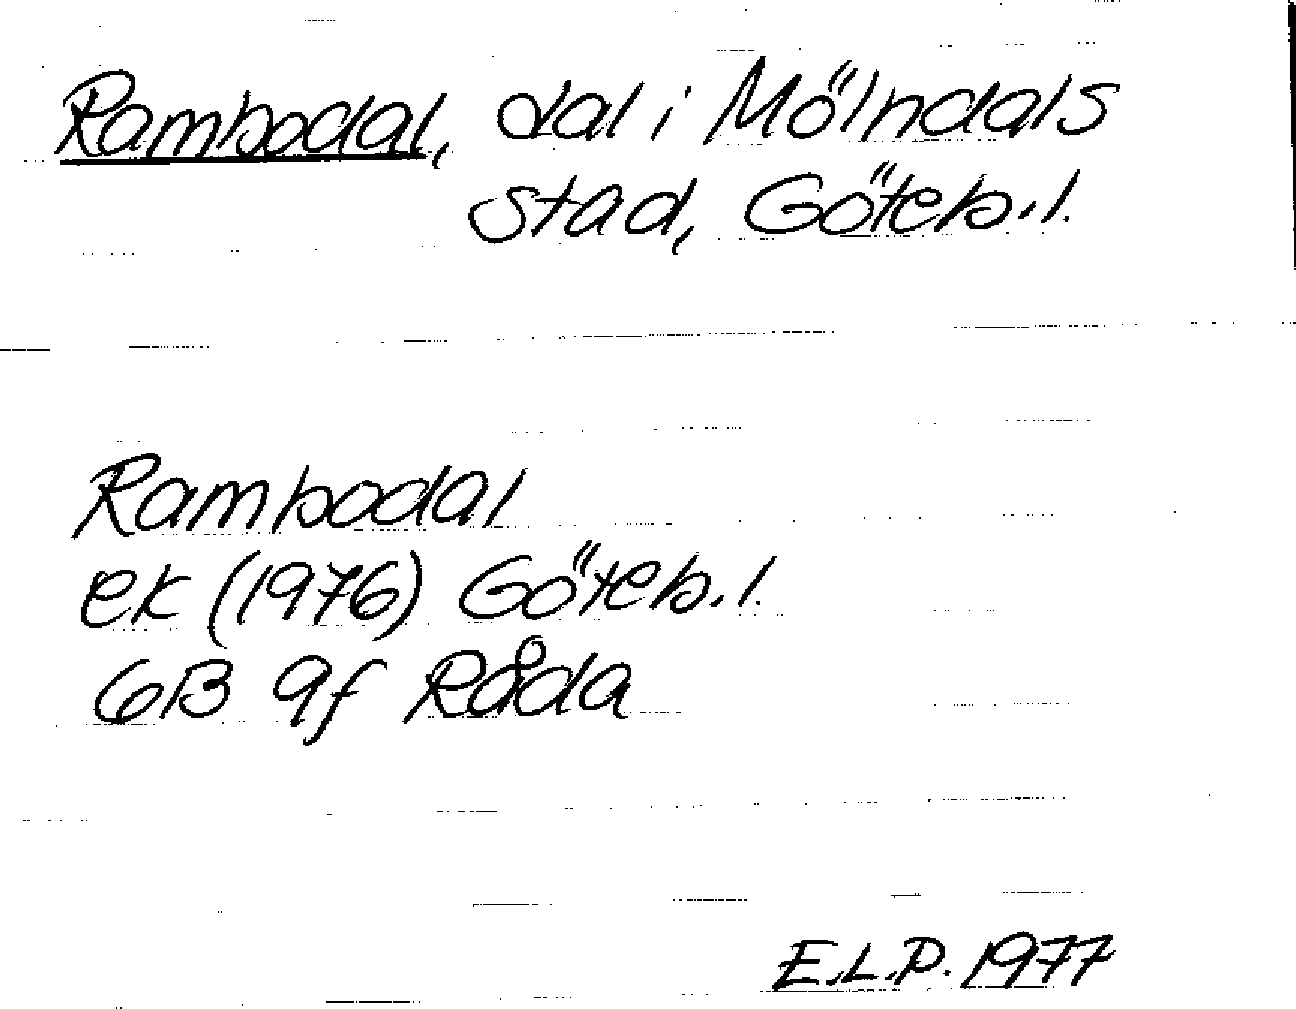 Rambodal, dal i Mölndals
stad, Göteb. l.
Rambodal
ek (1976) Göteb. l.
6B 9f Råda
E.L.P. 1977